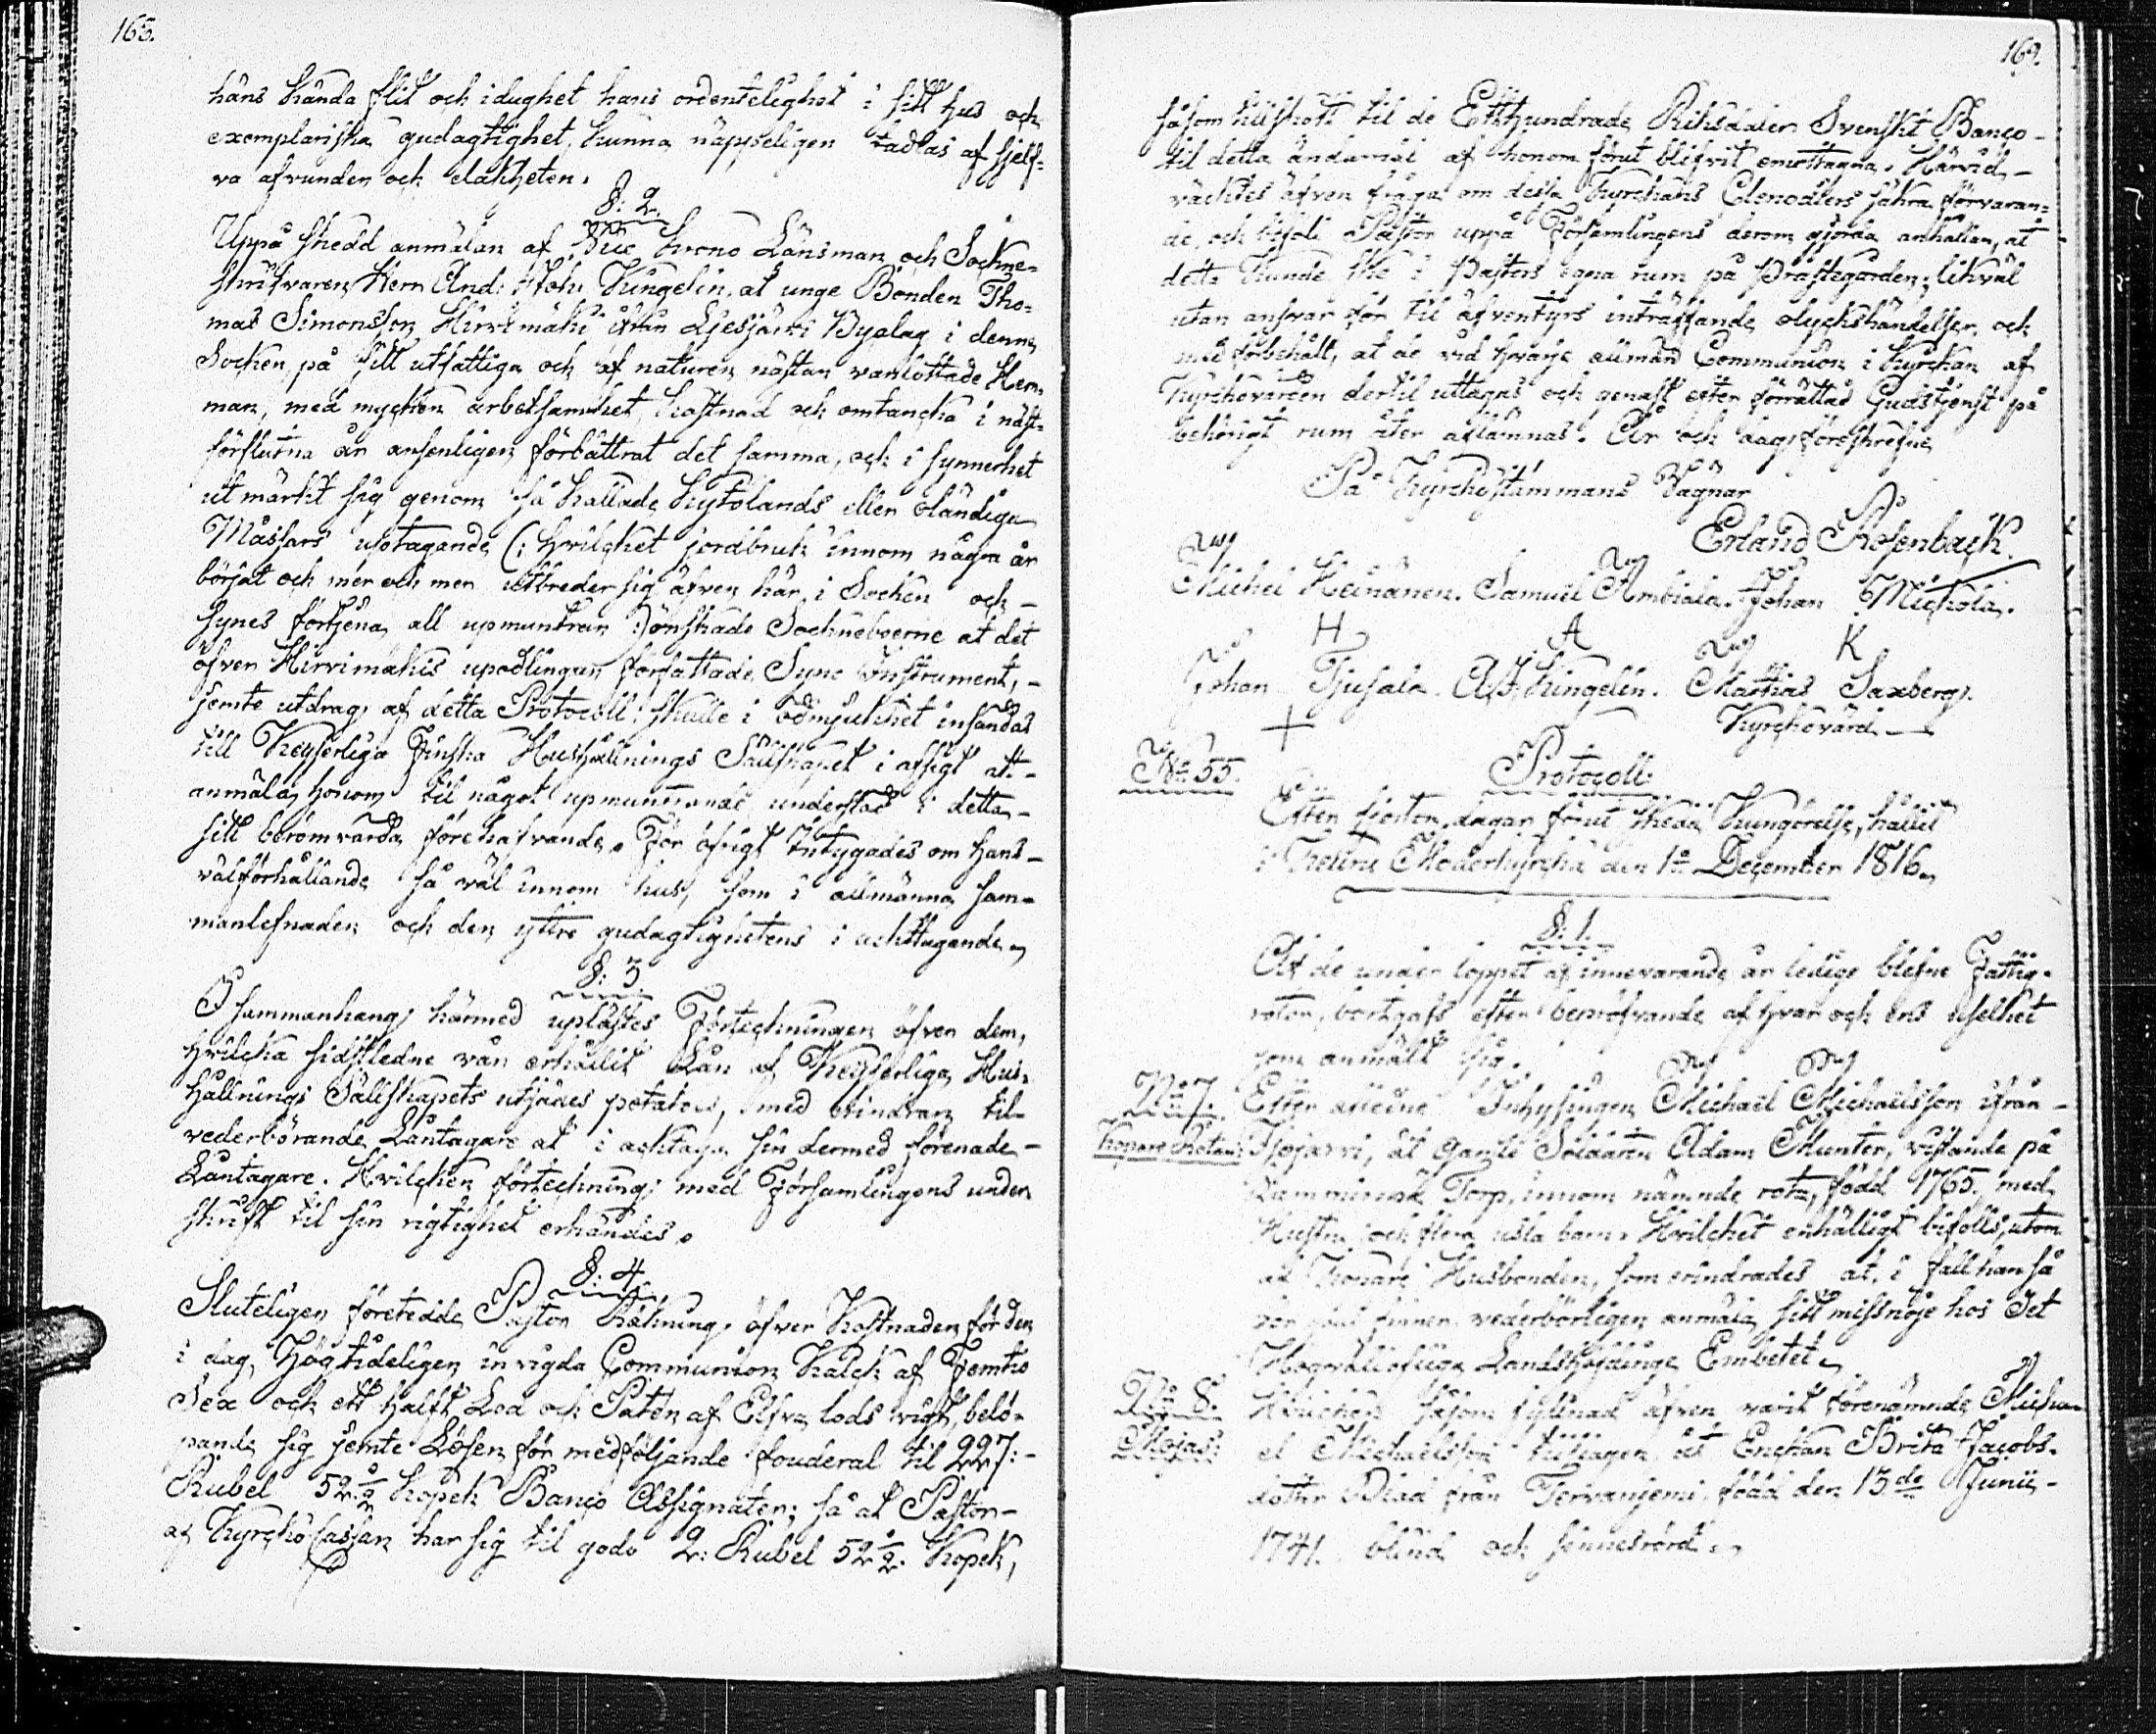 168.
håns kända flit och idughet hans ordentelighet i sitt hus och
exemplariska gudagtighet, kunna näppeligen tadlas af sjelf-
va afvunden och elakheten.
§: 2.
Uppå skedd anmälan af Vice Krono Länsman och Sockne-
skrifvaren Herr And: Joh: Kingelin, at unge Bonden Tho-
mas Simonsson Hirvimäki ifrån Ljesjärvi Byalag i denne
Socken, på sitt utfattiga och af naturen nästan vanlottade Hem-
man, med mycken arbetsamhet, kostnad och omtancka i näst-
förflutna år ansenligen förbättrat det samma, och i synnerhet
utmärkt sig genom så kallade kytolands eller oländiga
Mossars uptagande (: hvilcket jordbruk innom några år
börjat och mer och mer utbreder sig äfven här i Socken och
synes förtjena all upmuntran :) önskade Sockneboerne at det
öfver Hirvimäkis upodlingar författade Syne Instrument,
jemte utdrag af detta Protocoll skulle i ödmjukhet insändas
till Kejserliga Finska Hushållnings Sällskapet i afsigt att
anmäla honom til något upmuntrande understöd i detta
sitt berömvärda förehafvande. För öfrigt intygades om hans
välförhållande så väl innom hus, som i allmänna sam-
manlefnaden och den yttre gudagtighetens i acktagande.
§: 3
I sammanhang härmed uplästes Förteckningen öfver dem,
hvilcka sidstledne vår erhållit Lån af Kejserliga Hus-
hållnings Sällskapets utsädes potatoes, med erindran til
vederbörande Låntagare at i acktaga sin dermed förenade
Låntagare. Hvilcken förteckning med Församlingens under
skrift til sin rigtighet erkändes.
§: 4
Sluteligen företedde Pastor Räkning öfver Kostnaden för den
i dag Högtideligen invigda Communion Kalck af Femtio
Sex och ett halft Lod och Paten af Elfva lods vigt, belö-
pande sig jemte Lösen för medföljande fouderal til 227:
Rubel 52 1/2 kopek Banco Assignater; så at Pastor
af Kyrcko Cassan har sig til godo 2: Rubel 52 1/2. Kopek,
169.
såsom tillskott til de Etthundrade Riksdaler Svenskt Banco
til detta ändamål af honom förut blifvit emottagna. Härvid
väcktes äfven fråga om dessa Kyrckans Clenodiers säkra förvaran-
de, och biföll Pastor uppå Församlingens derom gjorda anhållan, at
detta kunde ske i Pastors egna rum på Prästegården; likväl
utan ansvar för til äfventyrs inträffande olyckshändelser, och
med förbehåll, at de vid hvarje allmän Communion i Kyrckan af
Kyrckovärden dertil uttagas och genast efter förrättad Gudstjenst på
behörigt rum åter aflämnas. År och dag förskrefne
På Kyrckostämmans Vägnar
Erland Rosenback.
Michel Heinänen. Samuel Ambiala. Johan Mickola.
H A K
Johan Tjusala. A. J. Kingelin. Mathias Saxberg.
+ Kyrckovärd
No 55. Protocoll
Efter fjorton dagar förut skedd Kungörelse, hållit
i Moderkyrcka den 1a December 1816.
§: 1.
Af de under loppet af innevarande år ledige blefne Fattig-
rotor, bortgafs efter bepröfvande af hvar och ens uselhet
som anmält sig.
No 7. Efter afledne Inhysingen Michael Michaelsson ifrån
Kopare Rotan: åt Soldaten Adam Munter, vistande på
Torp, innom nämnde rota, född 1765. med
Hustru och flera usla barn. Hvilcket enhälligt bifölls, utom
af Kopare Husbonden, som erindrades at, i fall han så
för godt finner vederbörligen anmäla sitt missnöje hos Det
Höglofliga Landshöfdinge Embetet.
No 8. såsom äfven varit förenämnde Micha-
Mojas: el Michaelsson tillslagen åt Enckan Brita Jacobs-
dotter från Tervanjemi född den 13de Junii
1741. blind och sinnesrörd.